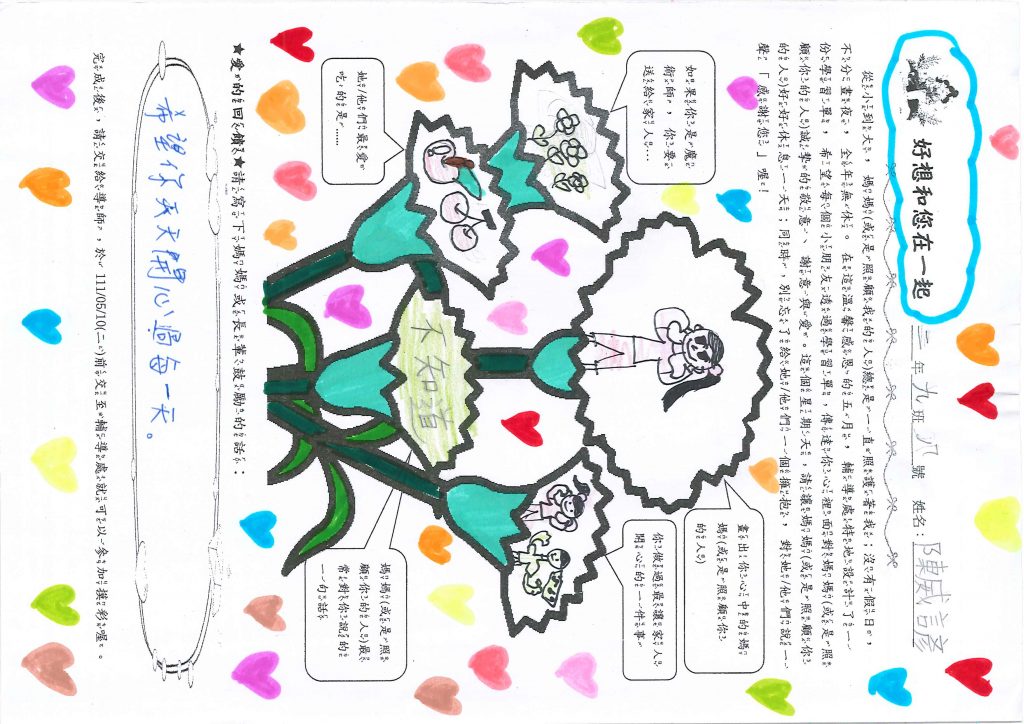 好想和您在一起
三年九班 八 號 姓名：陳威諺
從小到大，媽媽(或是照顧我的人)總是一直照護著我；沒有假日，
不分晝夜，全年無休。在這溫馨感恩的五月，輔導處特地設計了一
份學習單，希望每個小朋友透過學習單，傳達你心裡面對媽媽(或是照
顧你的人)誠摯的敬意、謝意與愛。這個星期天，請讓媽媽(或是照顧你
的人)好好休息一天；同時，別忘了給她/他們一個擁抱，對她/他們說一
聲「感謝您」喔！
如果你是魔
術師，你要
送給家人…
畫出你心中的媽
媽(或是照顧你
的人)
你做過最讓家人
開心的一件事
她/他們最愛
吃的是……
不知道
媽媽(或是照
顧你的人)最
常對你說的
一句話
★愛的回饋★請寫下媽媽或長輩鼓勵的話：
希望你天天開心過每一天。
完成後，請交給導師，於 111/05/10(二)前交至輔導處就可以參加摸彩喔。